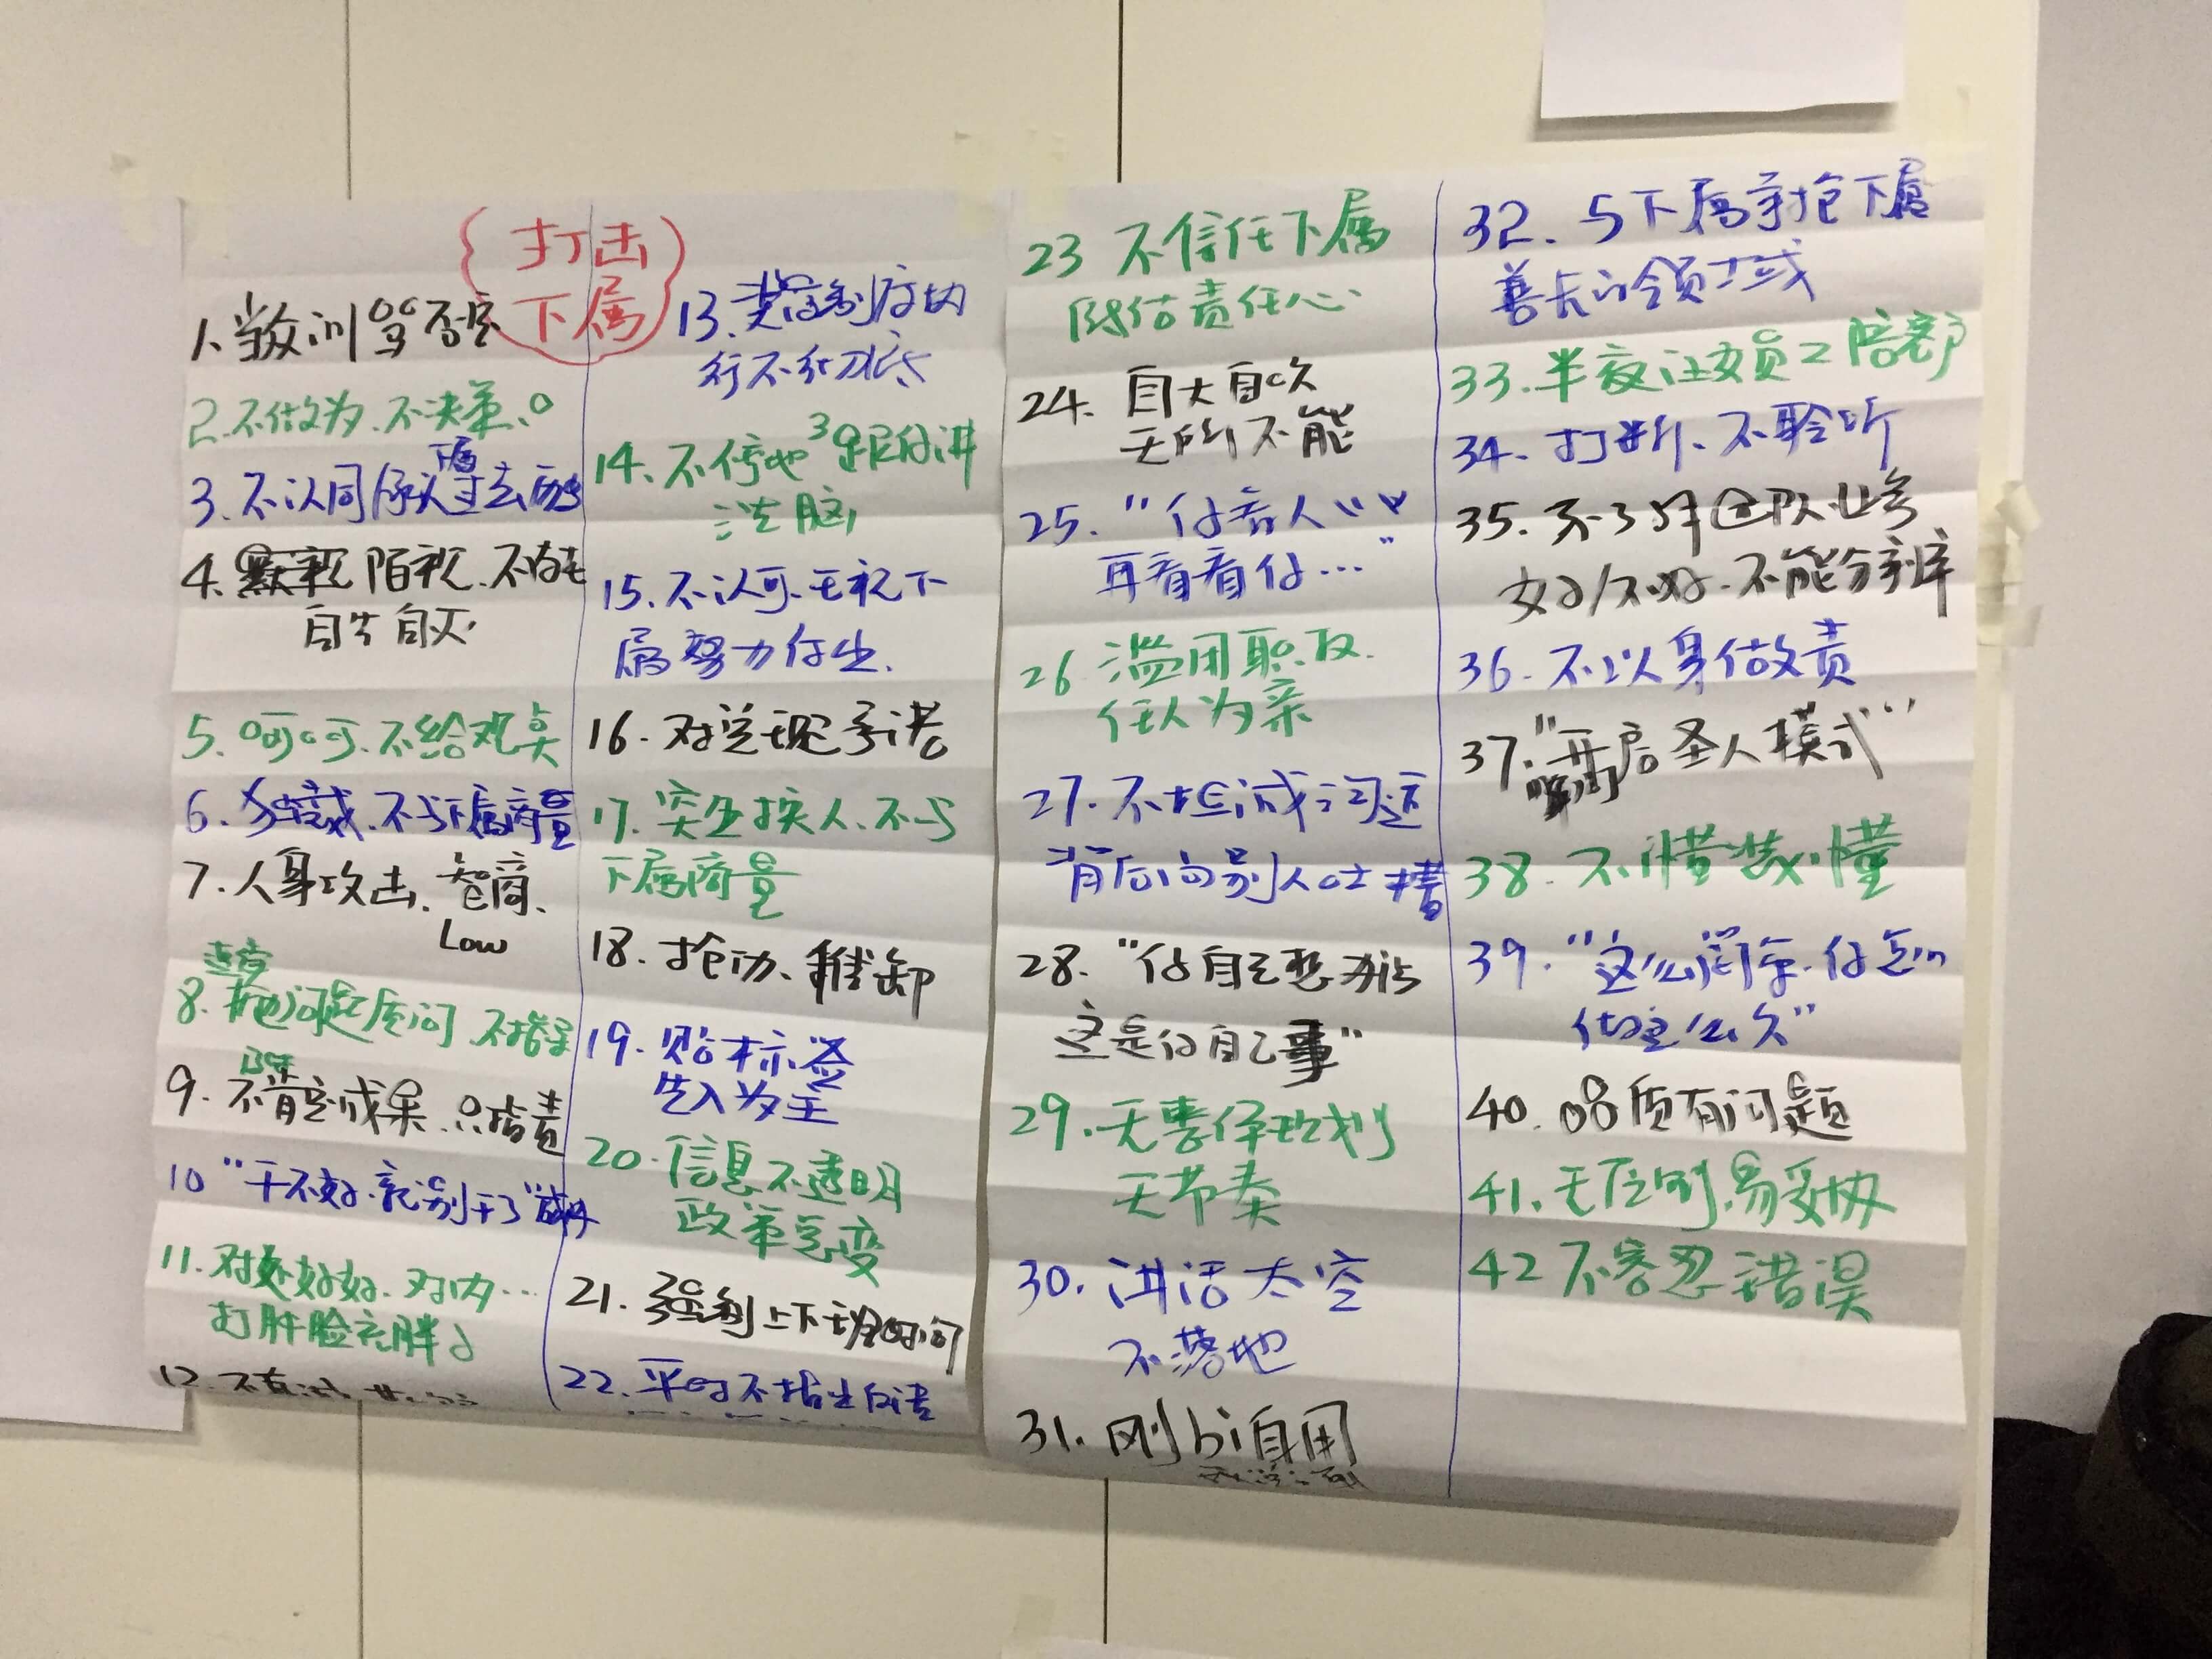 打击
下属
1. 当众训骂否定
2. 不做为、不决策。
下属
3. 不认同 过去
4. 陌视、不
自生自灭
5. 呵呵、不给
6. 独裁、不与下属商量
7. 人身攻击、智商、
Low
连营
8. 抛问题质问 不指导
9. 不肯定成果、只指责
10 "干不好、就别干了"
11. 对 好好、对内…
打肿脸充胖子
12.
13. 奖 制度执
行不彻底
14. 不停地 跟你讲
洗脑
15. 不认可、无视下
属努力付出.
16. 兑现承诺
17. 突然换人、不与
下属商量
18. 抢功、推卸
19. 贴标签
先入为主
20. 信息不透明
政策总变
21. 强制上下班时间
22. 平时不指出
23 不信任下属
降估责任心
24. 自大自
无所不能
25. "你看人
再看看你…"
26 滥用职权.
任人为亲
27. 不坦诚问题
背后向别人吐槽
28. "你自己想办法
这是你自己事"
29. 无事 规划
无节奏
30. 讲话太空
不落地
31. 刚bi自用
32. 与下属争抢下属
善长的领域
33. 半夜让女员工陪客户
34. 打断、不聆听
35. 不了解团队业务
好/不好. 不能分辨
36. 不以身做责
37. "开启圣人模式"
38. 不懂装懂
39. "这么简单、你怎么
做这么久"
40. 品质有问题
41. 无原则、易妥协
42 不容忍错误